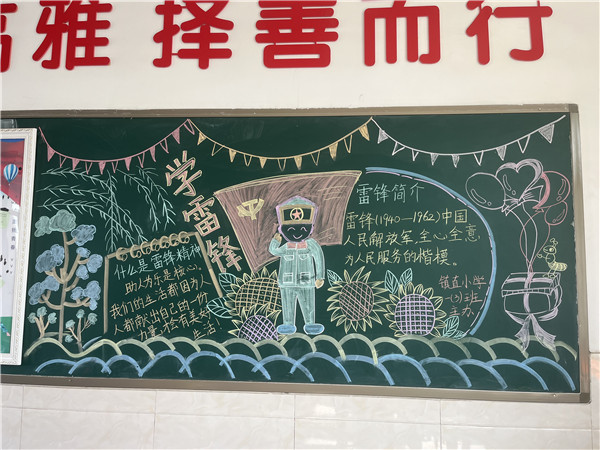 高雅 择善而行
学雷锋
什么是雷锋精神
助人为乐是核心。
我们的生活都因为人
人都献出自己的一份
力量,才会有美好
生活
雷锋简介
雷锋(1940—1962)中国
人民解放军,全心全意
为人民服务的楷模。
镇直小学
一(3)班
主办